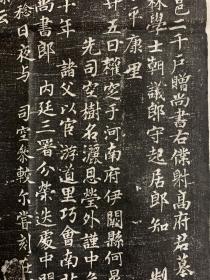 邑二千戶贈尚書右僕射高府君墓
林學士朝議郎守起居郎知 制
平康里
廿五日權窆于河南府伊闕縣何晏
先司空樹石灑恩塋外謹中
十年 諸父以官游道里巧會南北
尚書郎 內廷三署分榮迭處中
稔日夜与 司空參較尔嘗刻